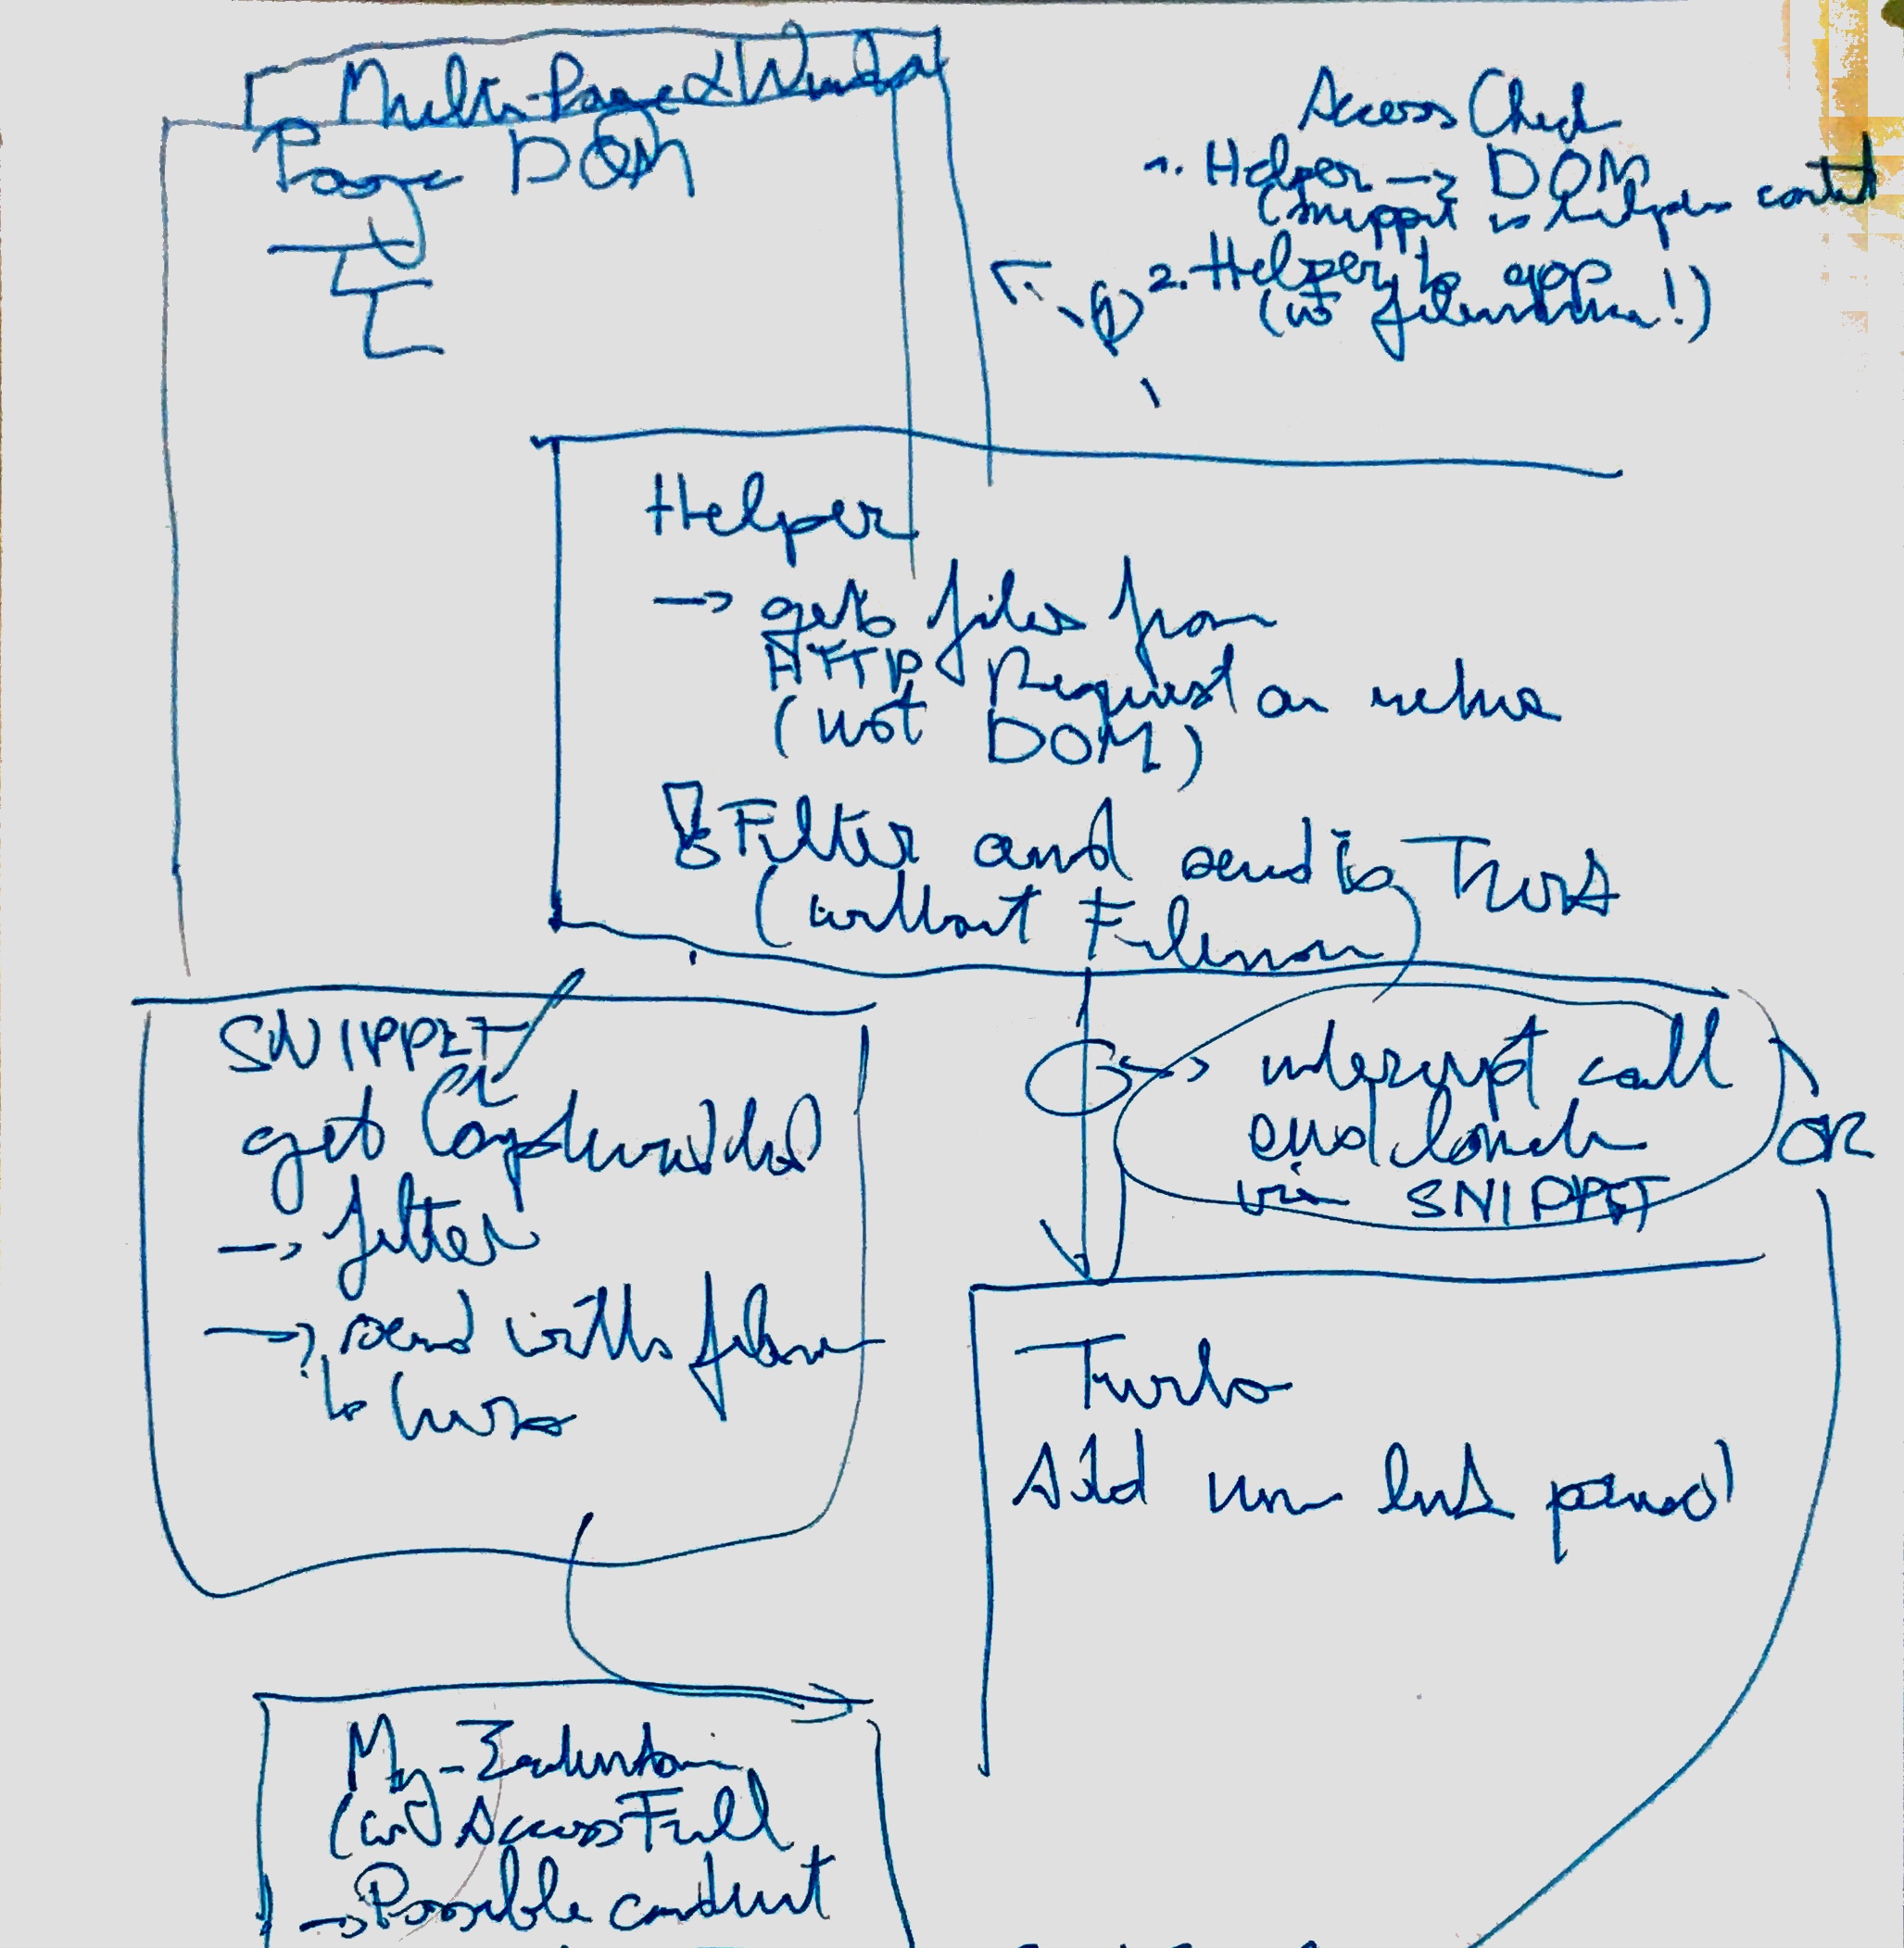 Multi Page & Window
Page DOM
Access Check
1. Helper -> DOM
(Snippet is helper
2. Helper to app
(w
Helper
-> gets files from
HTTP Request on
(not DOM)
Filter and send to Turbo
(without Filename)
SNIPPET
get
-> filter
-> send with
to Turbo
-> intercept call
and launch
via SNIPPET
OR
Turbo
Add link
My-
(w Access Full
-> Possible conduit